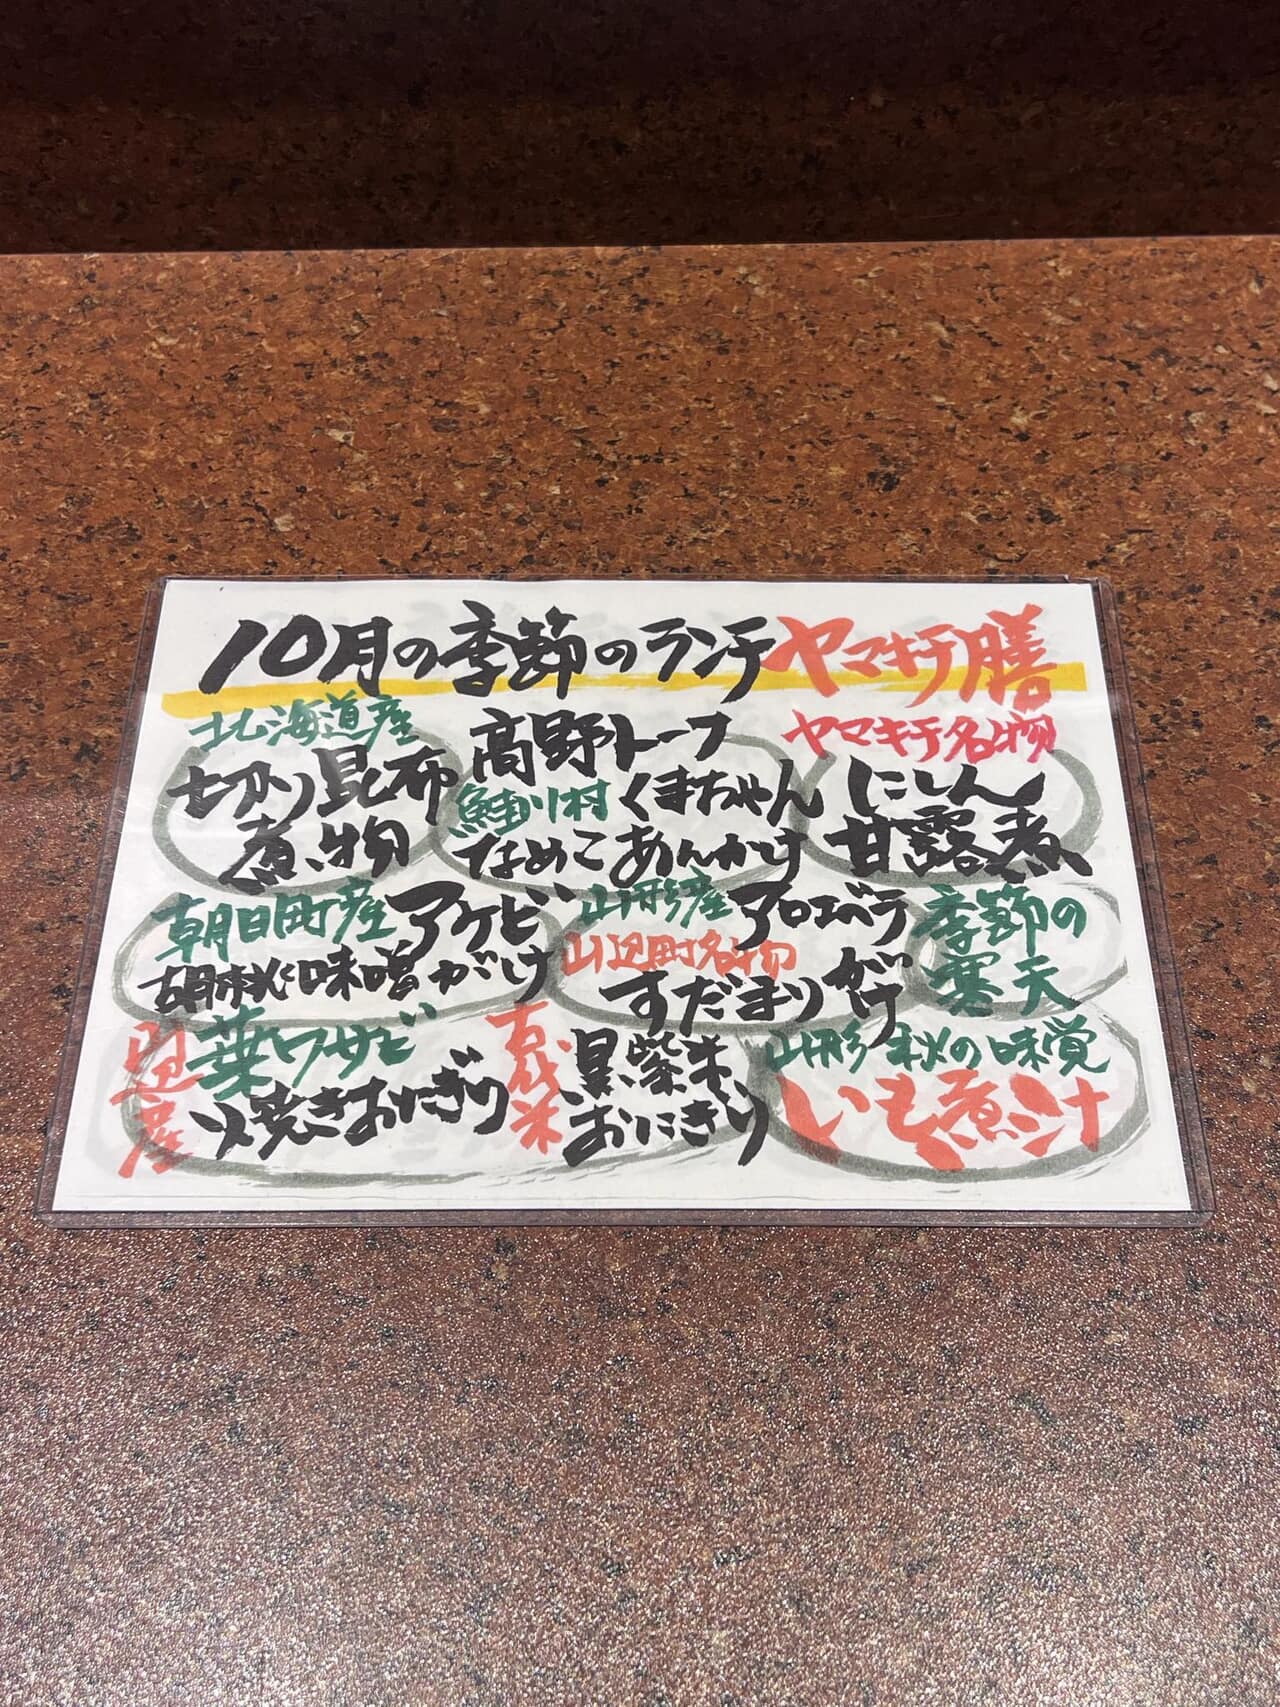 10月の季節のランチ ヤマキチ膳
北海道産
切り昆布
煮物
高野トーフ
鮭川村 くまちゃん
なめこ あんかけ
ヤマキチ名物
にしん
甘露煮
朝日町産 アケビ
胡桃 味噌がけ
山形産 アロエベラ
山辺町名物
すだまりがけ
季節の
寒天
葉ワサビ
焼きおにぎり
古代米
黒紫米
おにぎり
山形 秋の味覚
いも煮汁